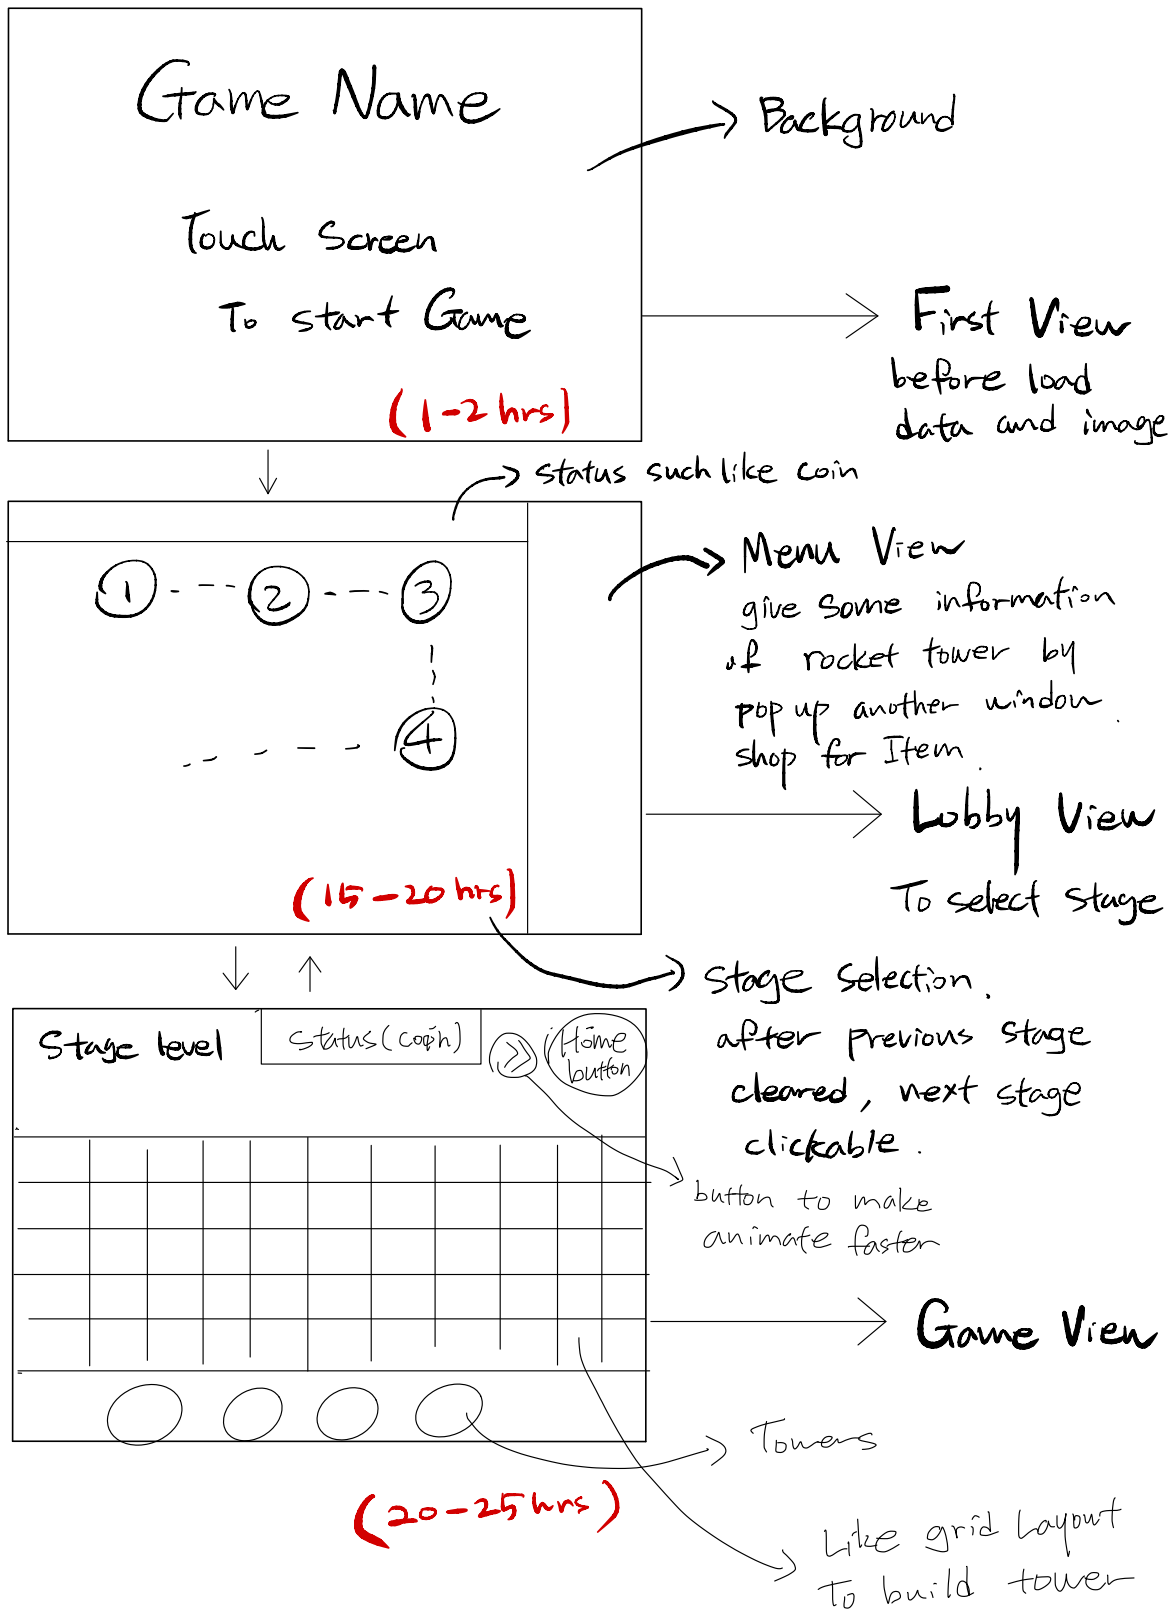 Game Name
Background
Touch Screen
To start Game
First View
before load
data and image
(1-2 hrs)
status such like coin
Menu View
give some information
of rocket tower by
pop up another window.
shop for Item.
1
2
3
4
Lobby View
To select stage
(15-20 hrs)
Stage Selection.
after previous stage
cleared, next stage
clickable.
Stage level
Status(coin)
>>
Home
button
button to make
animate faster
Game View
Towers
(20-25 hrs)
Like grid Layout
To build tower